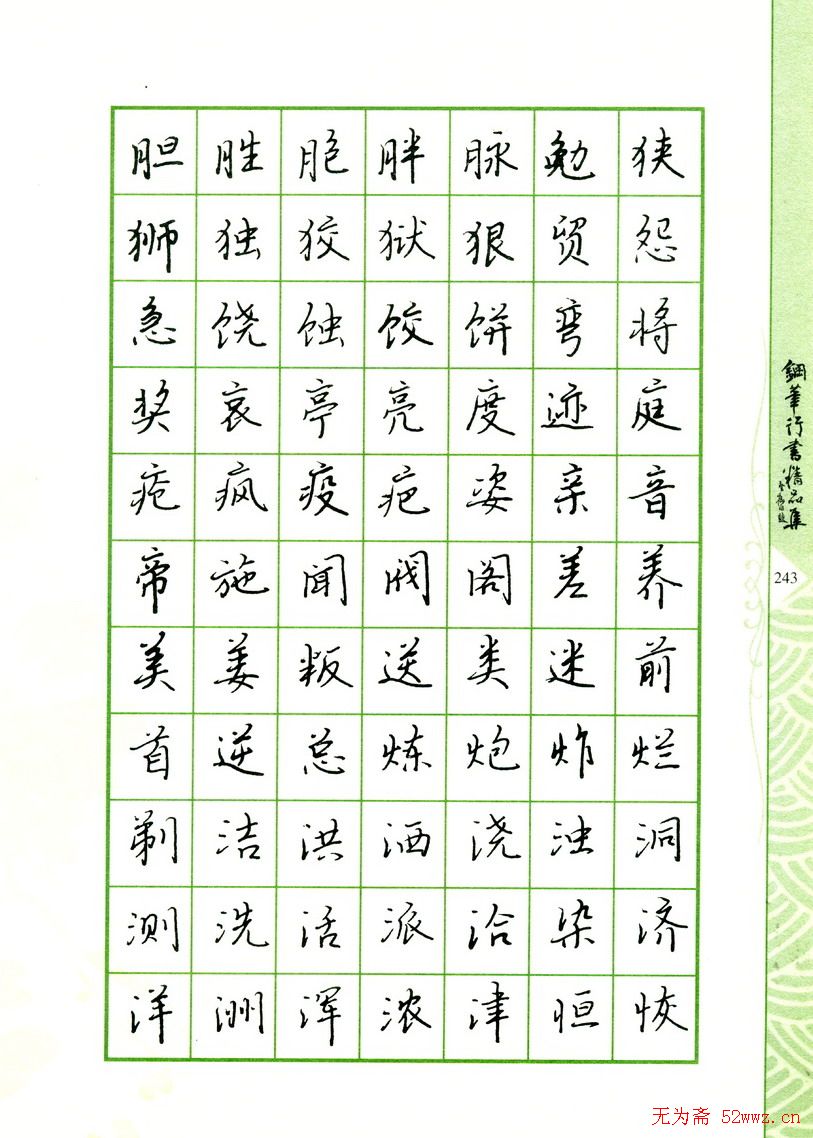 胆胜脆胖脉勉狭
狮独狡狱狠贸怨
急饶蚀饺饼弯将
奖哀亭亮度迹庭
疮疯疫疤姿亲音
帝施闻阀阁差养
美姜叛送类迷前
首逆总炼炮炸烂
剃洁洪洒浇浊洞
测洗活派洽染济
洋洲浑浓津恒恢
鋼筆行書精品集
243
无为斋 52wwz.cn